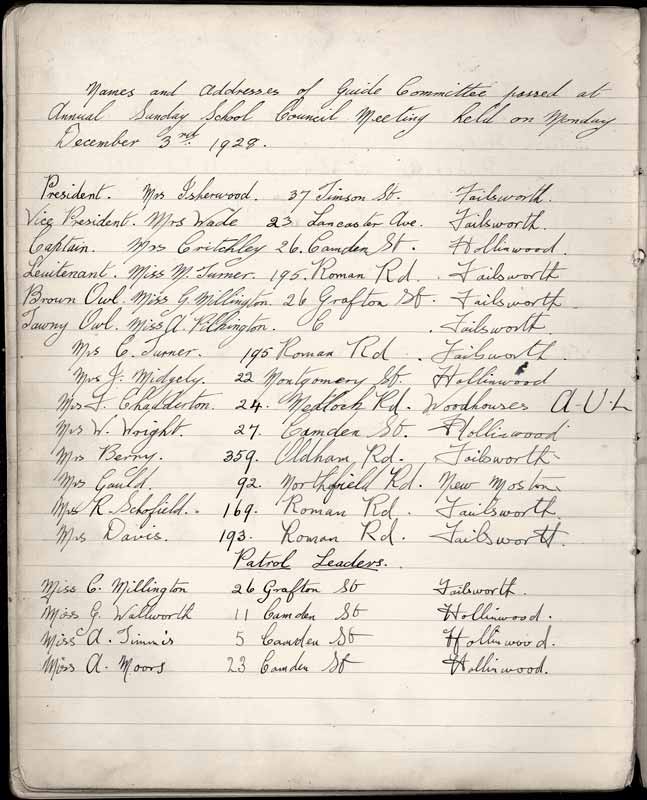 Names and addresses of Guide Committee passed at
Annual Sunday School Council Meeting held on Monday
December 3rd. 1928.
President. Mrs Isherwood. 37 Timson St. Failsworth.
Vice President. Mrs Wade 23 Lancaster Ave. Failsworth.
Captain. Mrs Critchley 26. Camden St. Hollinwood.
Leuitenant. Miss M. Turner. 195. Roman Rd. Failsworth
Brown Owl. Miss G. Millington. 26 Grafton St. Failsworth.
Tawny Owl. Miss A. Pilkington. Failsworth.
Mrs C. Turner. 195 Roman Rd. Failsworth.
Mrs J. Midgely. 22 Montgomery St. Hollinwood
Mrs J. Chadderton. 24. Medlock Rd. Woodhouses A-U-L
Mrs W. Wright. 27. Camden St. Hollinwood
Mrs Berry. 359. Oldham Rd. Failsworth
Mrs Gauld. 92. Northfield Rd. New Moston
Mrs R. Schofield. 169. Roman Rd. Failsworth.
Mrs Davis. 193. Roman Rd. Failsworth.
Patrol Leaders.
Miss C. Millington 26 Grafton St Failsworth.
Miss G. Wallworth 11 Camden St Hollinwood.
Miss A. Timmis 5 Camden St Hollinwood.
Miss A. Moors 23 Camden St Hollinwood.